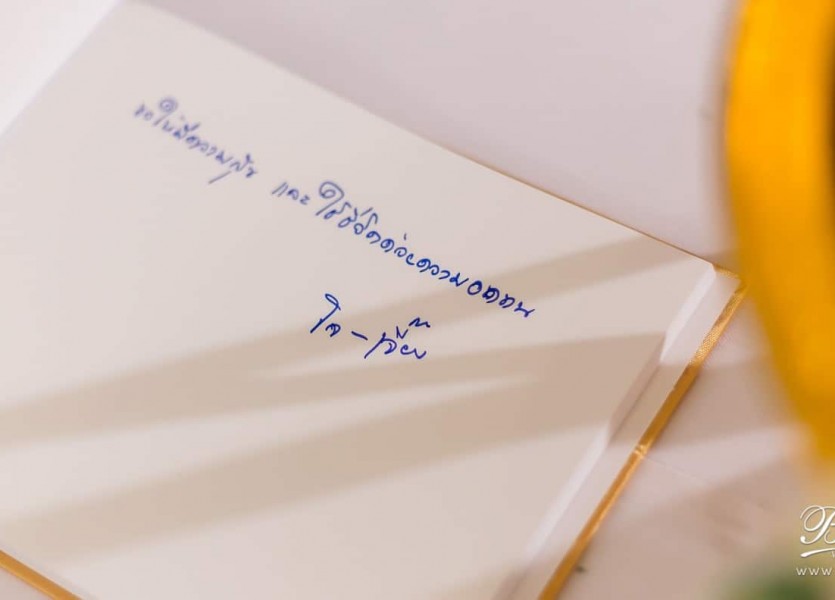 ขอให้มีความสุข และ ใช้ชีวิตด้วยความอดทน
เจี๊ยบ
www.